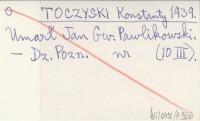 TOCZYSKI Konstanty 1939.
Umarł Jan Gw. Pawlikowski.
— Dz. Pozn. nr (10 III).